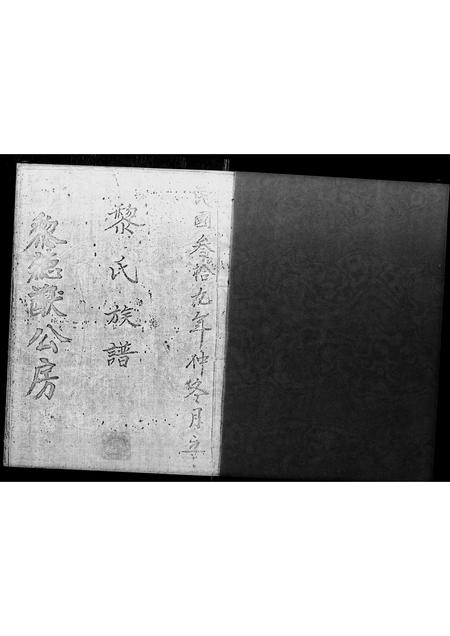 民國叁拾九年仲冬月立
黎氏族譜
黎德猷公房